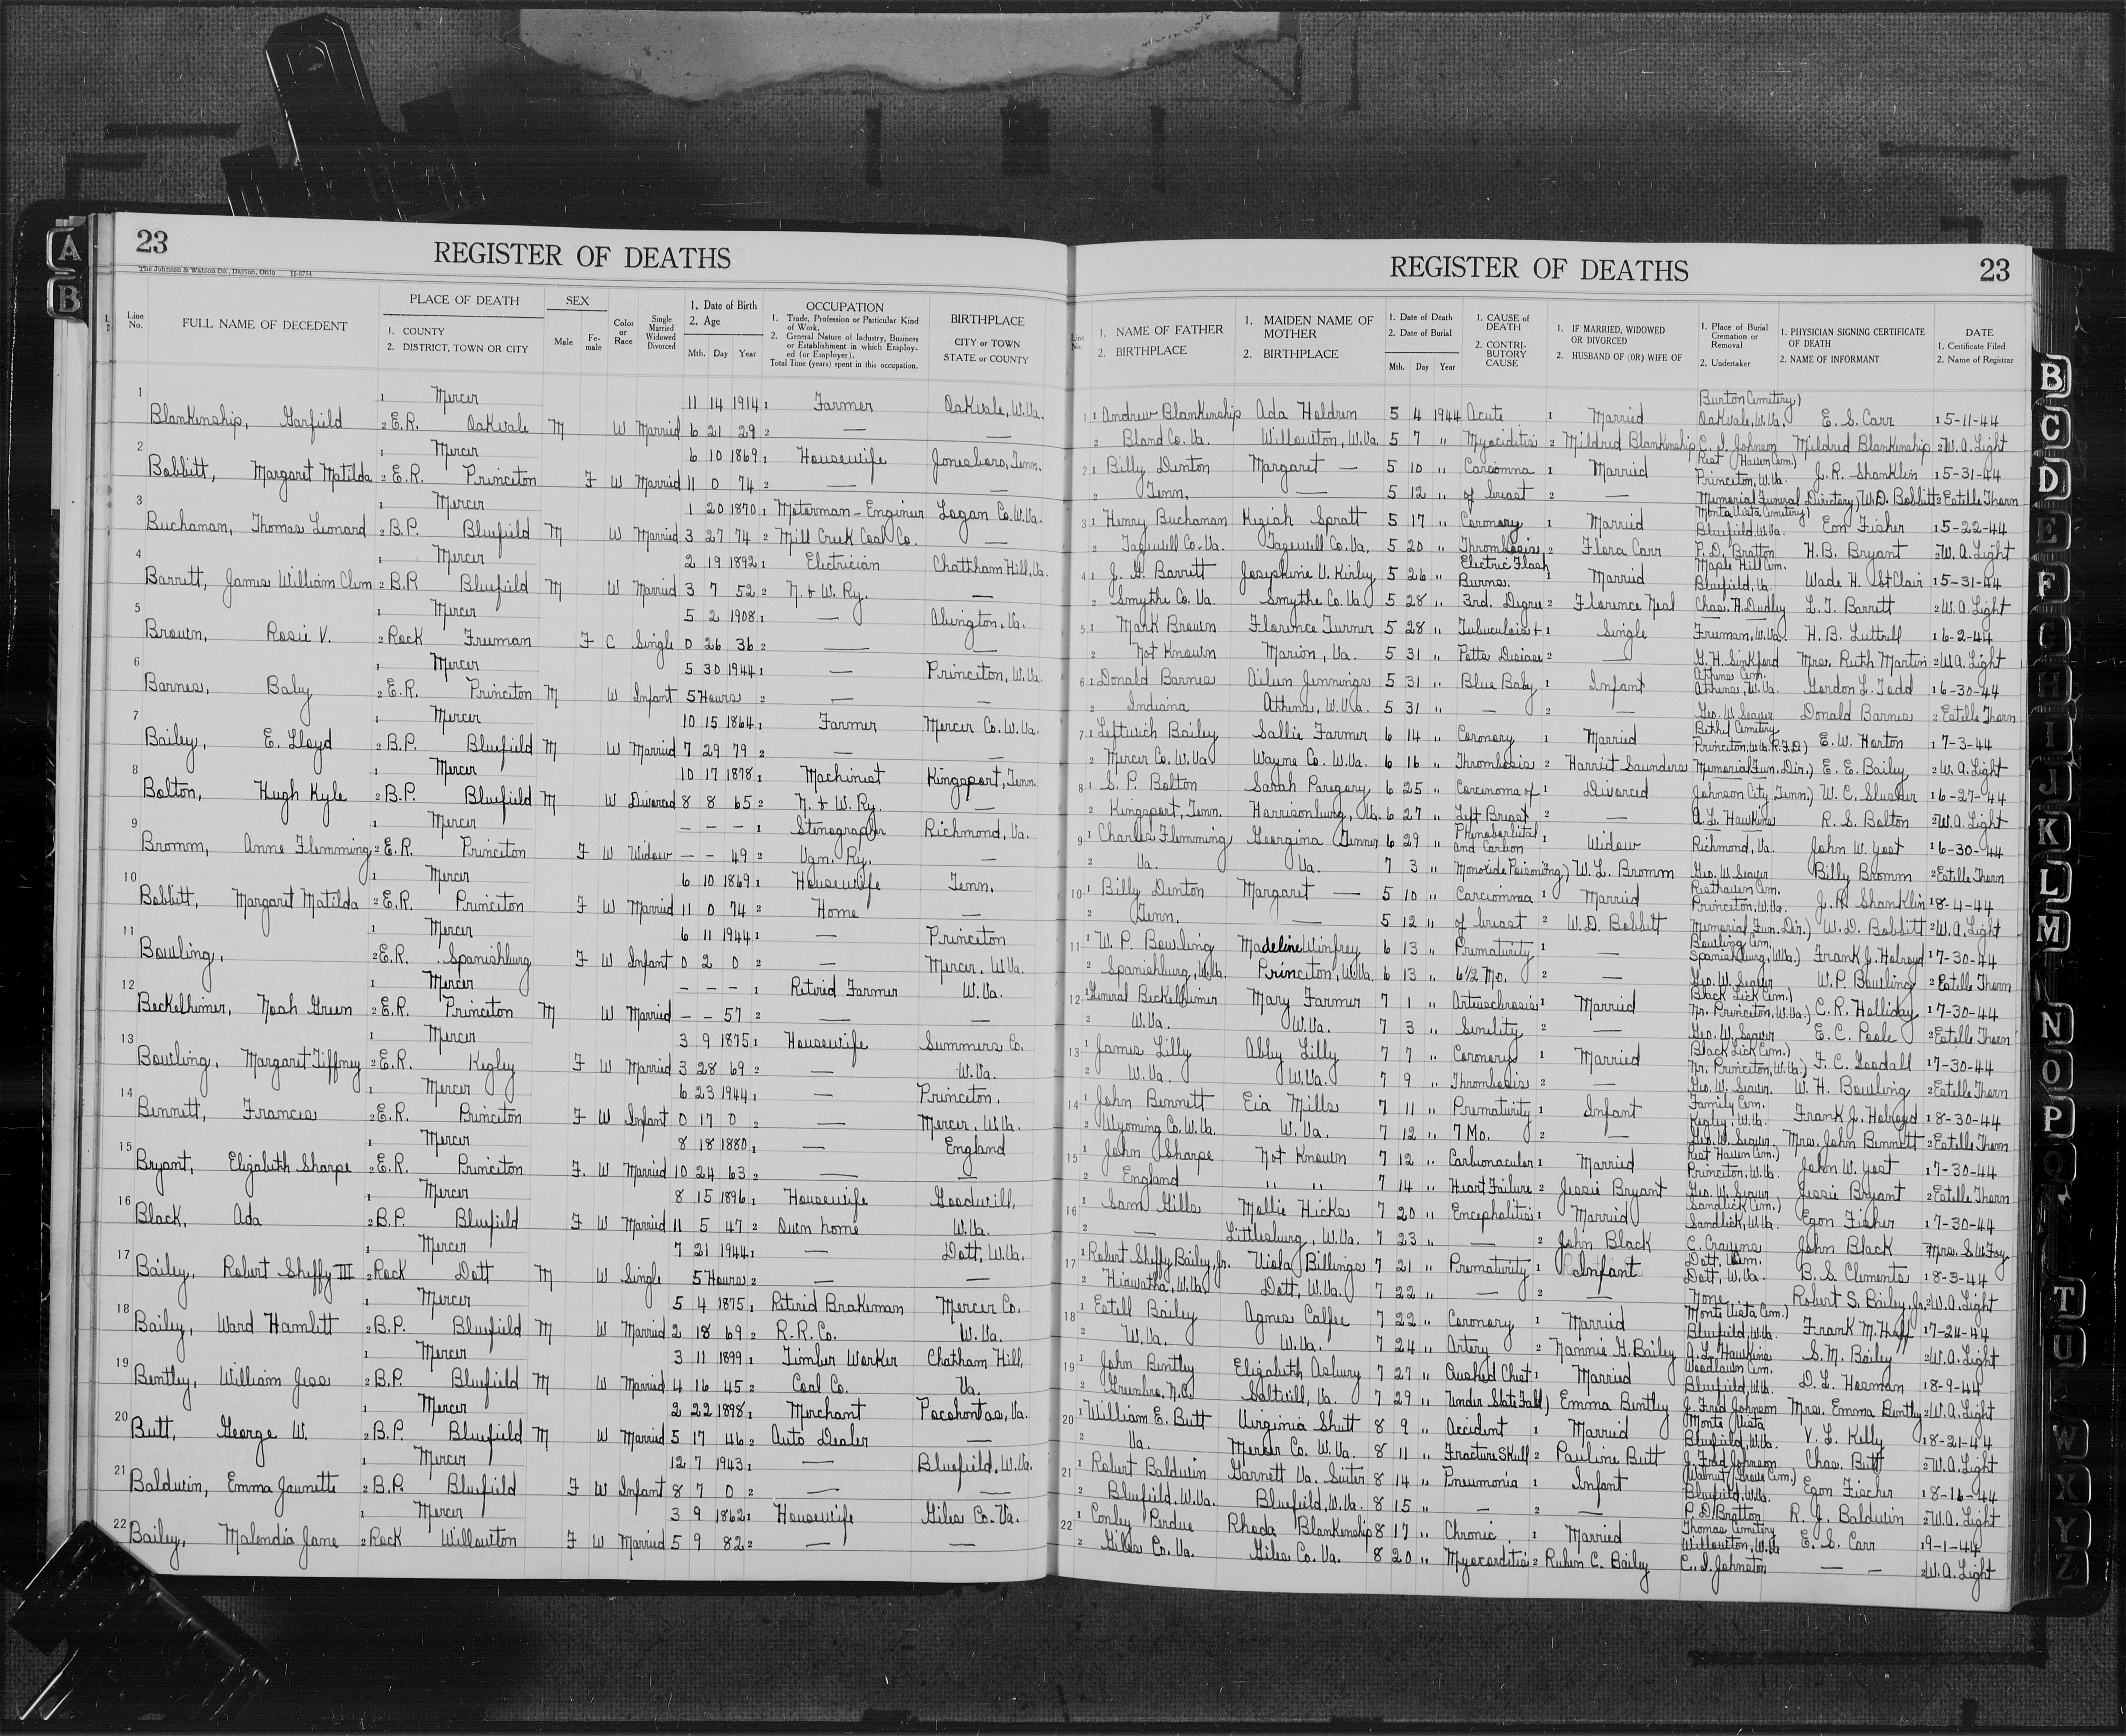 23
REGISTER OF DEATHS
The Johnson & Watson Co., Dayton, Ohio H-8754
Line No.
FULL NAME OF DECEDENT
PLACE OF DEATH
1. COUNTY
2. DISTRICT, TOWN OR CITY
SEX
Male
Female
Color or Race
Single Married Widowed Divorced
1. Date of Birth
2. Age
Mth. Day Year
OCCUPATION
1. Trade, Profession or Particular Kind of Work.
2. General Nature of Industry, Business or Establishment in which Employed (or Employer).
Total Time (years) spent in this occupation.
BIRTHPLACE
CITY or TOWN
STATE or COUNTY
1 1 Mercer 11 14 1914 1 Farmer Oakvale, W.Va.
Blankenship, Garfield 2 E.R. Oakvale M W Married 6 21 29 2 — —
2 1 Mercer 6 10 1869 1 Housewife Jonesboro, Tenn.
Bobbitt, Margaret Matilda 2 E.R. Princeton F W Married 11 0 74 2 — —
3 1 Mercer 1 20 1870 1 Motorman-Enginer Logan Co. W.Va.
Buchanan, Thomas Leonard 2 B.P. Bluefield M W Married 3 27 74 2 Mill Creek Coal Co. —
4 1 Mercer 2 19 1892 1 Electrician Chattham Hill, Va.
Barrett, James William Clem 2 B.P. Bluefield M W Married 3 7 52 2 N. & W. Ry. —
5 1 Mercer 5 2 1908 1 — Abington, Va.
Brown, Rosie V. 2 Rock Freeman F C Single 0 26 36 2 — —
6 1 Mercer 5 30 1944 1 — Princeton, W.Va.
Barnes, Baby 2 E.R. Princeton M W Infant 5 Hours 2 — —
7 1 Mercer 10 15 1864 1 Farmer Mercer Co. W.Va.
Bailey, E. Lloyd 2 B.P. Bluefield M W Married 7 29 79 2 — —
8 1 Mercer 10 17 1878 1 Machinest Kingsport, Tenn.
Bolton, Hugh Kyle 2 B.P. Bluefield M W Divorced 8 8 65 2 N. & W. Ry. —
9 1 Mercer — — — 1 Stenographer Richmond, Va.
Bromm, Anne Flemming 2 E.R. Princeton F W Widow — — 49 2 Vgn. Ry. —
10 1 Mercer 6 10 1869 1 Housewife Tenn.
Bobbitt, Margaret Matilda 2 E.R. Princeton F W Married 11 0 74 2 Home —
11 1 Mercer 6 11 1944 1 — Princeton
Bowling, 2 E.R. Spanishburg F W Infant 0 2 0 2 — Mercer, W.Va.
12 1 Mercer — — — 1 Retired Farmer W.Va.
Beckelheimer, Noah Green 2 E.R. Princeton M W Married — — 57 2 — —
13 1 Mercer 3 9 1875 1 Housewife Summers Co.
Bowling, Margaret Tiffney 2 E.R. Kegley F W Married 3 28 69 2 — W.Va.
14 1 Mercer 6 23 1944 1 — Princeton.
Bennett, Frances 2 E.R. Princeton F W Infant 0 17 0 2 — Mercer, W.Va.
15 1 Mercer 8 18 1880 1 — England
Bryant, Elizabeth Sharpe 2 E.R. Princeton F. W Married 10 24 63 2 — —
16 1 Mercer 8 15 1896 1 Housewife Goodwill,
Black, Ada 2 B.P. Bluefield F W Married 11 5 47 2 Own home W.Va.
17 1 Mercer 7 21 1944 1 — Dott, W.Va.
Bailey, Robert Sheffy III 2 Rock Dott M W Single 5 Hours 2 — —
18 1 Mercer 5 4 1875 1 Retired Brakeman Mercer Co.
Bailey, Ward Hamlett 2 B.P. Bluefield M W Married 2 18 69 2 R.R. Co. W.Va.
19 1 Mercer 3 11 1899 1 Timber Worker Chatham Hill,
Bentley, William Jess 2 B.P. Bluefield M W Married 4 16 45 2 Coal Co. Va.
20 1 Mercer 2 22 1898 1 Merchant Pocahontas, Va.
Butt, George W. 2 B.P. Bluefield M W Married 5 17 46 2 Auto Dealer —
21 1 Mercer 12 7 1943 1 — Bluefield, W.Va.
Baldwin, Emma Jaunette 2 B.P. Bluefield F W Infant 8 7 0 2 — —
22 1 Mercer 3 9 1862 1 Housewife Giles Co. Va.
Bailey, Malendia Jane 2 Rock Willowton F W Married 5 9 82 2 — —
REGISTER OF DEATHS
23
Line No.
1. NAME OF FATHER
2. BIRTHPLACE
1. MAIDEN NAME OF MOTHER
2. BIRTHPLACE
1. Date of Death
2. Date of Burial
Mth. Day Year
1. CAUSE of DEATH
2. CONTRIBUTORY CAUSE
1. IF MARRIED, WIDOWED OR DIVORCED
2. HUSBAND OF (OR) WIFE OF
1. Place of Burial Cremation or Removal
2. Undertaker
1. PHYSICIAN SIGNING CERTIFICATE OF DEATH
2. NAME OF INFORMANT
DATE
1. Certificate Filed
2. Name of Registrar
Burton Cemetery)
1 1 Andrew Blankenship Ada Holdren 5 4 1944 Acute 1 Married Oakvale, W.Va. E. S. Carr 1 5-11-44
2 Bland Co. Va. Willowton, W.Va. 5 7 " Myociditis 2 Mildred Blankenship C. I. Johnson Mildred Blankenship 2 W. A. Light
Rest Haven Cem.)
2 1 Billy Denton Margaret — 5 10 " Carciomna 1 Married Princeton, W.Va. J. R. Shanklin 1 5-31-44
2 Tenn. — 5 12 " of breast 2 — Memorial Funeral Directory) W.D. Bobbitt 2 Estelle Thorn
Monta Vista Cemetery)
3 1 Henry Buchanan Keziah Spratt 5 17 " Coronary 1 Married Bluefield, W.Va. Eon Fisher 1 5-22-44
2 Tazewell Co. Va. Tazewell Co. Va. 5 20 " Thrombosis 2 Flora Carr P. D. Bratton H. B. Bryant 2 W. A. Light
Electric Flash Maple Hill Cem.
4 1 J. H. Barrett Josephine V. Kirby 5 26 " Burns. 1 Married Bluefield, Va. Wade H. St Clair 1 5-31-44
2 Smythe Co. Va. Smythe Co. Va. 5 28 " 3rd. Degree 2 Florence Neal Chas. H. Dudley L. T. Barrett 2 W. A. Light
5 1 Mark Brown Florence Turner 5 28 " Tubuculois + 1 Single Freeman, W.Va. H. B. Luttrell 1 6-2-44
2 Not Known Marion, Va. 5 31 " Potts Disease 2 — G. H. Sinkford Mrs. Ruth Martin 2 W.A. Light
Athens Cem.
6 1 Donald Barnes Aileen Jennings 5 31 " Blue Baby 1 Infant Athens, W.Va. Gordon L. Todd 1 6-30-44
2 Indiana Athens, W.Va. 5 31 " — 2 — Geo. W. Seaver Donald Barnes 2 Estelle Thorn
Bethel Cemetery
7 1 Leftwich Bailey Sallie Farmer 6 14 " Coronary 1 Married Princeton, W.Va. R.F.D.) E. W. Horton 1 7-3-44
2 Mercer Co. W.Va. Wayne Co. W.Va. 6 16 " Thrombosis 2 Harriet Saunders Memorial Fun. Dir.) E. E. Bailey 2 W. A. Light
8 1 S. P. Bolton Sarah Paregory 6 25 " Carcenoma of 1 Divorced Johnson City, Tenn.) W. C. Slusher 1 6-27-'44
2 Kingsport, Tenn. Harrisonburg, Va. 6 27 " Left Breast 2 — A. L. Hawkins R. S. Bolton 2 W.A. Light
Phenobarbital
9 1 Charles Flemming Georgina Tenner 6 29 " and Carbon 1 Widow Richmond, Va. John W. Yost 1 6-30-44
2 Va. Va. 7 3 " Monoxide Poisoning) W. L. Bromm Geo. W. Seaver Billy Bromm 2 Estelle Thorn
Resthaven Cem.
10 1 Billy Denton Margaret — 5 10 " Carciomma 1 Married Princeton, W.Va. J. R. Shanklin 1 8-4-44
2 Tenn. — 5 12 " of breast 2 W. D. Bobbitt Memorial Fun. Dir.) W. D. Bobbitt 2 W. A. Light
Bowling Cem.
11 1 W. P. Bowling Madeline Winfrey 6 13 " Prematurity 1 — Spanishburg, W.Va.) Frank J. Holroyd 1 7-30-44
2 Spanishburg, W.Va. Princeton, W.Va. 6 13 " 6½ Mo. 2 — Geo. W. Seaver W. P. Bowling 2 Estelle Thorn
Black Lick Cem.)
12 1 General Beckelheimer Mary Farmer 7 1 " 1 Married Nr. Princeton, W.Va.) C. R. Holliday 1 7-30-44
2 W.Va. W.Va. 7 3 " Senility 2 — Geo. W. Seaver E. C. Poole 2 Estelle Thorn
Black Lick Cem.)
13 1 James Lilly Abby Lilly 7 7 " Coronary 1 Married Nr. Princeton, W.Va.) F. C. Goodall 1 7-30-44
2 W.Va. W.Va. 7 9 " Thrombosis 2 — Geo. W. Seaver. W. H. Bowling 2 Estelle Thorn
Family Cem.
14 1 John Bennett Eia Mills 7 11 " Prematurity 1 Infant Kegley, W.Va. Frank J. Holroyd 1 8-30-44
2 Wyoming Co. W.Va. W.Va. 7 12 " 7 Mo. 2 — Geo. W. Seaver. Mrs. John Bennett 2 Estelle Thorn
Rest Haven Cem.)
15 1 John Sharpe Not Known 7 12 " Carbionacular 1 Married Princeton, W.Va. John W. Yost 1 7-30-44
2 England " " 7 14 " Heart Failure 2 Jessie Bryant Geo. W. Seaver Jessie Bryant 2 Estelle Thorn
Sandlick Cem.)
16 1 Sam Gills Mollie Hicks 7 20 " Encephalitis 1 Married Sandlick, W.Va. Egon Fisher 1 7-30-44
2 — Littlesburg, W.Va. 7 23 " — 2 John Black C. Cravens John Black 2 Mrs. S W Foy
Dott, Cem.
17 1 Robert Sheffy Bailey, Jr. Viola Billings 7 21 " Prematurity 1 Infant Dott, W.Va. B. S. Clements 1 8-3-44
2 Hiawatha, W.Va. Dott, W.Va. 7 22 " — 2 — None Robert S. Bailey, Jr. 2 W.A. Light
Monte Vista Cem.)
18 1 Estell Bailey Agnes Calfee 7 22 " Coronary 1 Married Bluefield, W.Va. Frank M. Huff 1 7-24-44
2 W.Va. W.Va. 7 24 " Artery 2 Nannie H. Bailey A. L. Hawkins S. M. Bailey 2 W.A. Light
Woodlawn Cem.
19 1 John Bentley Elizabeth Asbury 7 27 " Crushed Chest 1 Married Bluefield, W.Va. D. L. Hosman 1 8-9-44
2 Greenbro, N.C. Saltvill, Va. 7 29 " Under Slate Fall) Emma Bentley J. Fred Johnson Mrs. Emma Bentley 2 W.A. Light
Monta Vista
20 1 William E. Butt Virginia Shutt 8 9 " Accident 1 Married Bluefield, W.Va. V. L. Kelly 1 8-21-44
2 Va. Mercer Co. W.Va. 8 11 " Fracture Skull 2 Pauline Butt J. Fred Johnson Chas. Butt 2 W.A. Light
Walnut Grove Cem.)
21 1 Robert Baldwin Garnett Va. Suiter 8 14 " Pneumonia 1 Infant Bluefield, W.Va. Egon Fischer 1 8-16-44
2 Bluefield, W.Va. Bluefield, W.Va. 8 15 " — 2 — P. D. Bratton R. J. Baldwin 2 W.A. Light
Thomas Cemetery
22 1 Conley Perdue Rhoda Blankenship 8 17 " Chronic 1 Married Willowton, W.Va E. S. Carr 1 9-1-44
2 Giles Co. Va. Giles Co. Va. 8 20 " Myocarditis 2 Ruben C. Bailey C. I. Johnston — — 2 W. A. Light
A
B
B
C
D
E
F
G
H
I
J
K
L
M
N
O
P
Q
T
U
W
X
Y
Z